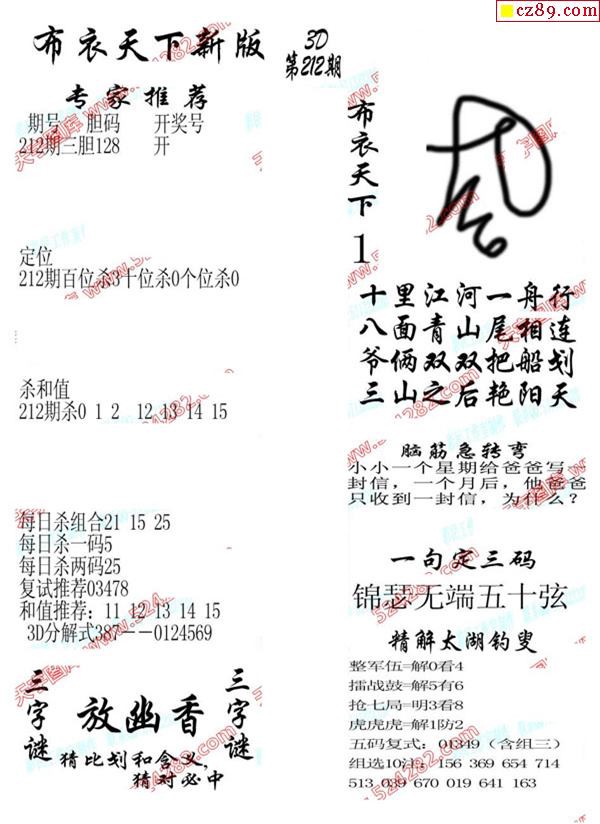 cz89.com
布衣天下新版
专家推荐
期号 胆码 开奖号
212期三胆128 开
定位
212期百位杀3十位杀0个位杀0
杀和值
212期杀0 1 2 12 13 14 15
每日杀组合21 15 25
每日杀一码5
每日杀两码25
复试推荐03478
和值推荐：11 12 13 14 15
3D分解式387--0124569
三字谜
放幽香
三字谜
猜比划和含义,
猜对必中
3D
第212期
布衣天下
1
十里江河一舟行
八面青山尾相连
爷俩双双把船划
三山之后艳阳天
脑筋急转弯
小小一个星期给爸爸写一
封信，一个月后，他爸爸
只收到一封信，为什么？
一句定三码
锦瑟无端五十弦
精解太湖钓叟
整军伍=解0看4
擂战鼓=解5有6
抢七局=明3看8
虎虎虎=解1防2
五码复式：01349（含组三）
组选10注：156 369 654 714
513 039 670 019 641 163